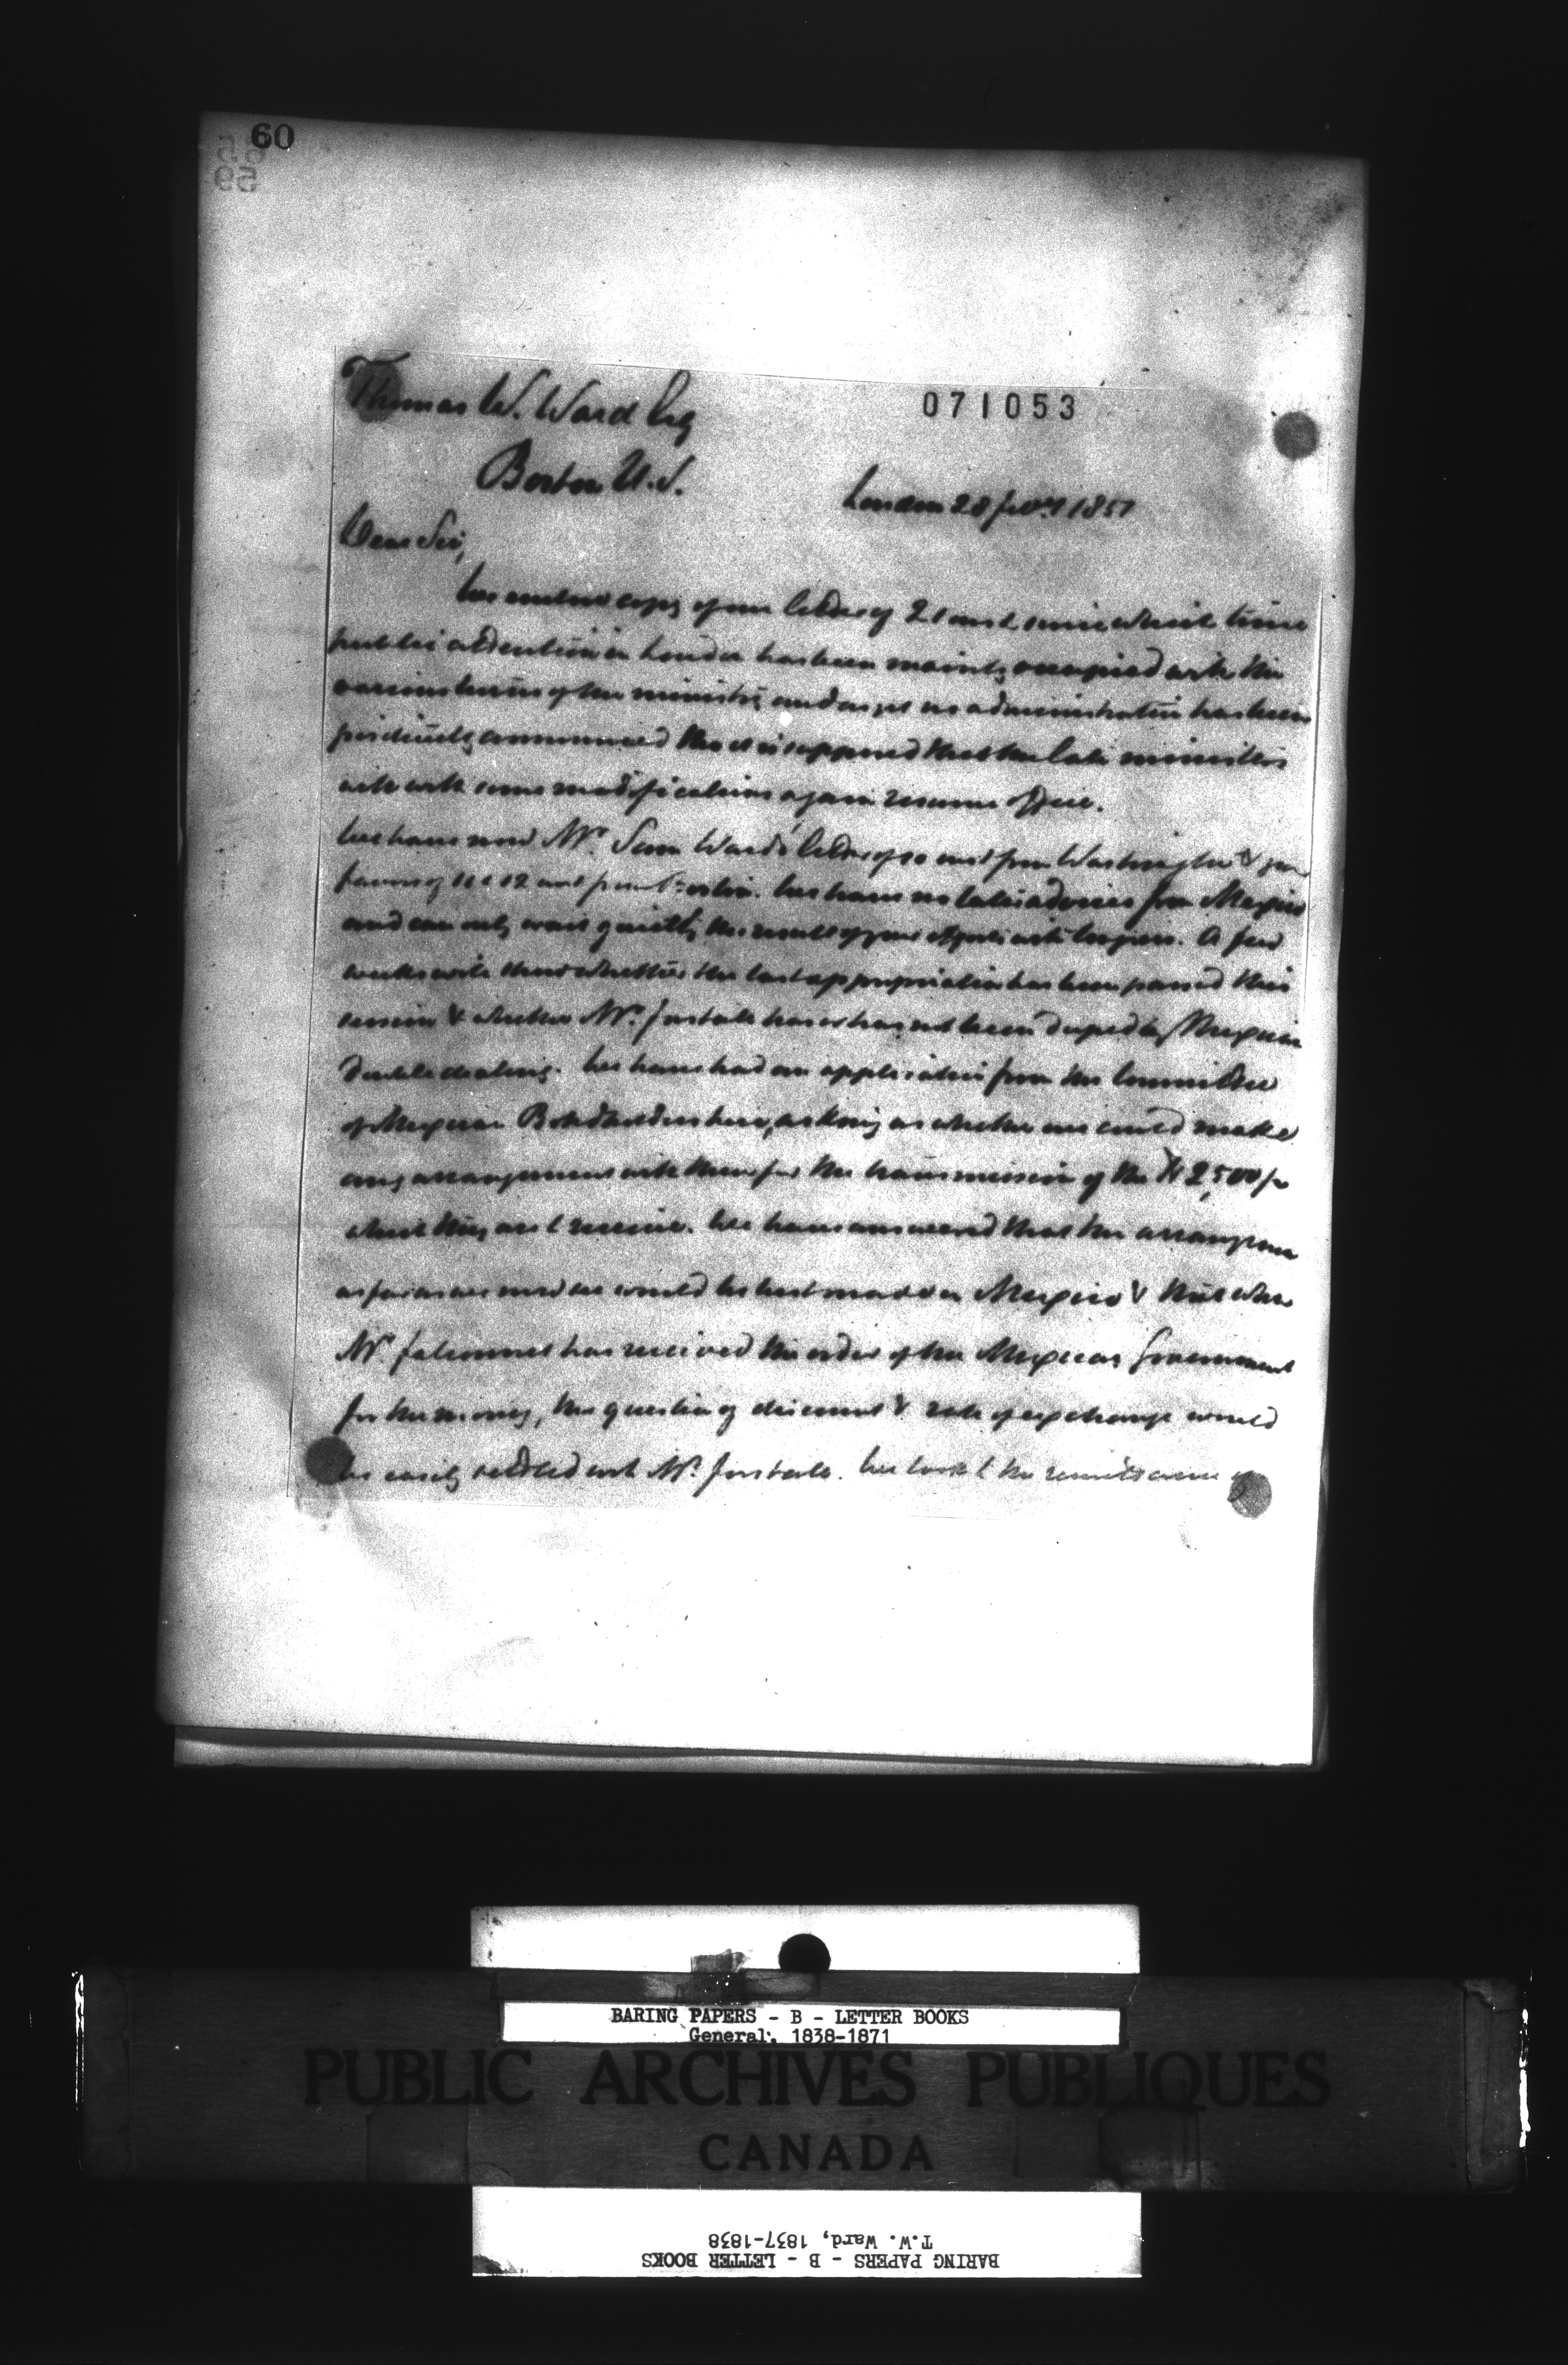 60
59
071053
Thomas W. Ward Esq
Boston U.S.
London 28 feb 1851
Dear Sir,
We enclose copy of our letter of 21 inst since which time
public attention in London has been mainly occupied with the
of the ministry and as yet no administration has been
positively announced tho it is supposed that the late ministers
will with some modifications again resume office.
We have now Mr. Sam Ward's letter of 10 inst from Washington & your
favors of 11 & 12 inst from Boston. We have no later advices from Mexico
and can only wait quietly the result of your efforts with Congress. A few
weeks will shew whether the last appropriation has been passed this
session & whether Mr. Forstall has or has not been duped by Mexican
double dealing. We have had an application from the Committee
of Mexican Bondholders here, asking us whether we could make
any arrangement with them for the transmission of the $ 2,500/m
which they are to receive. We have answered that the arrangement
as far as we now see could be best made in Mexico & that when
Mr. Falconnet has received the order of the Mexican Government
for the money, the question of discount & rate of exchange could
be easily settled with Mr. Forstall. the remittance of
BARING PAPERS - B - LETTER BOOKS
General, 1838-1871
PUBLIC ARCHIVES PUBLIQUES
CANADA
BARING PAPERS - B - LETTER BOOKS
T.W. Ward, 1837-1838